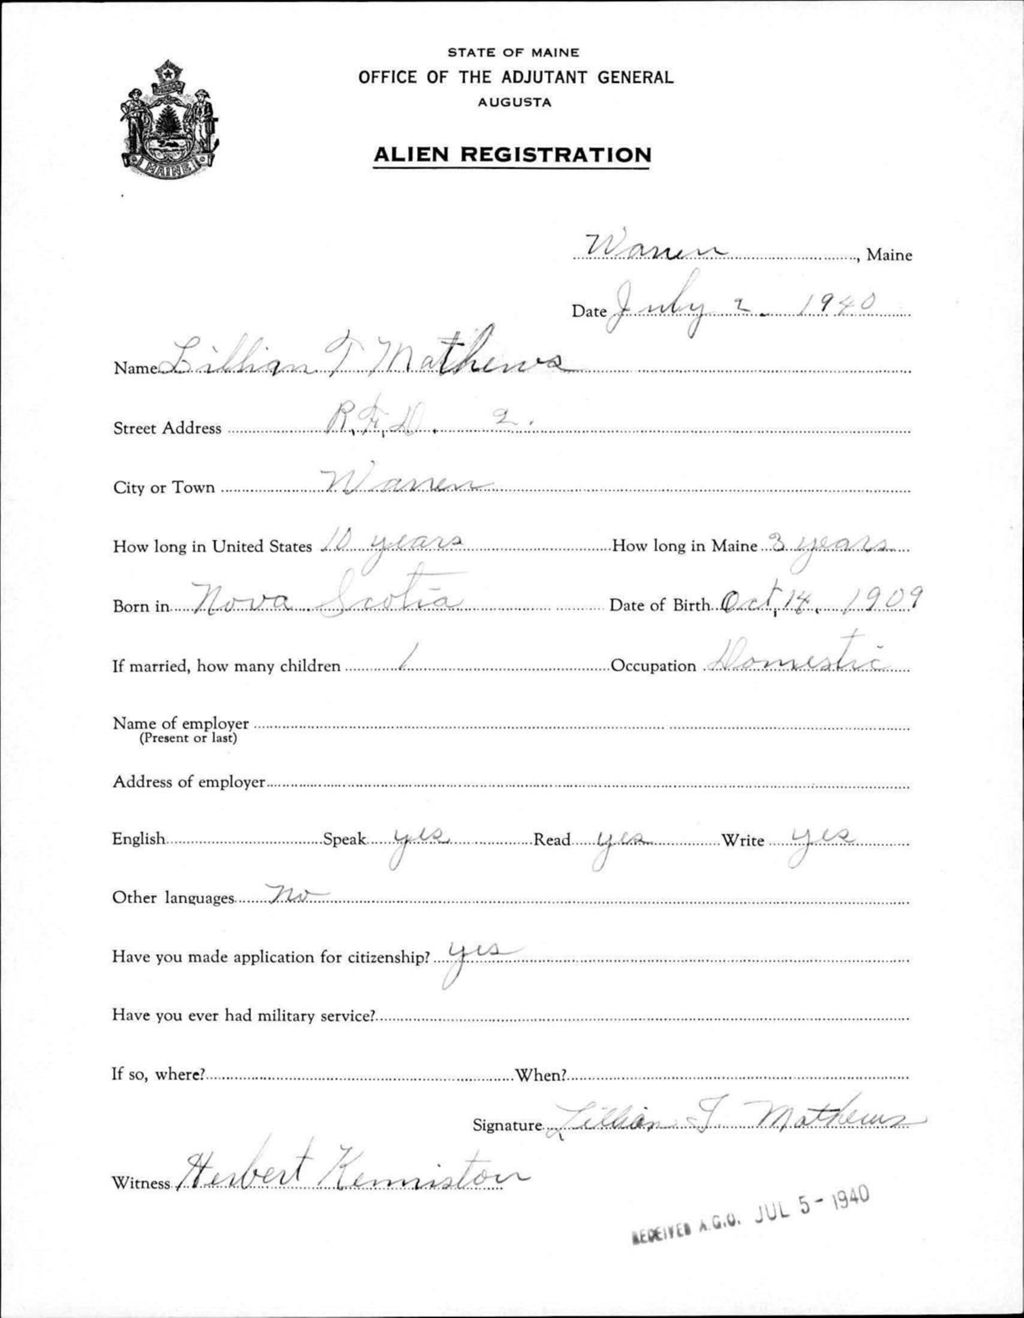 STATE OF MAINE
OFFICE OF THE ADJUTANT GENERAL
AUGUSTA
ALIEN REGISTRATION
MAINE
Warren, Maine
Date July 2. 1940
Name Lillian T Mathews
Street Address R.F.D. 2.
City or Town Warren
How long in United States 10 years How long in Maine 3 years
Born in Nova Scotia Date of Birth Oct, 14, 1909
If married, how many children 1 Occupation Domestic
Name of employer
(Present or last)
Address of employer
English Speak yes Read yes Write yes
Other languages no
Have you made application for citizenship? yes
Have you ever had military service?
If so, where? When?
Signature Lillian T Mathews
Witness Herbert Kenniston
RECEIVED A.G.O. JUL 5 - 1940